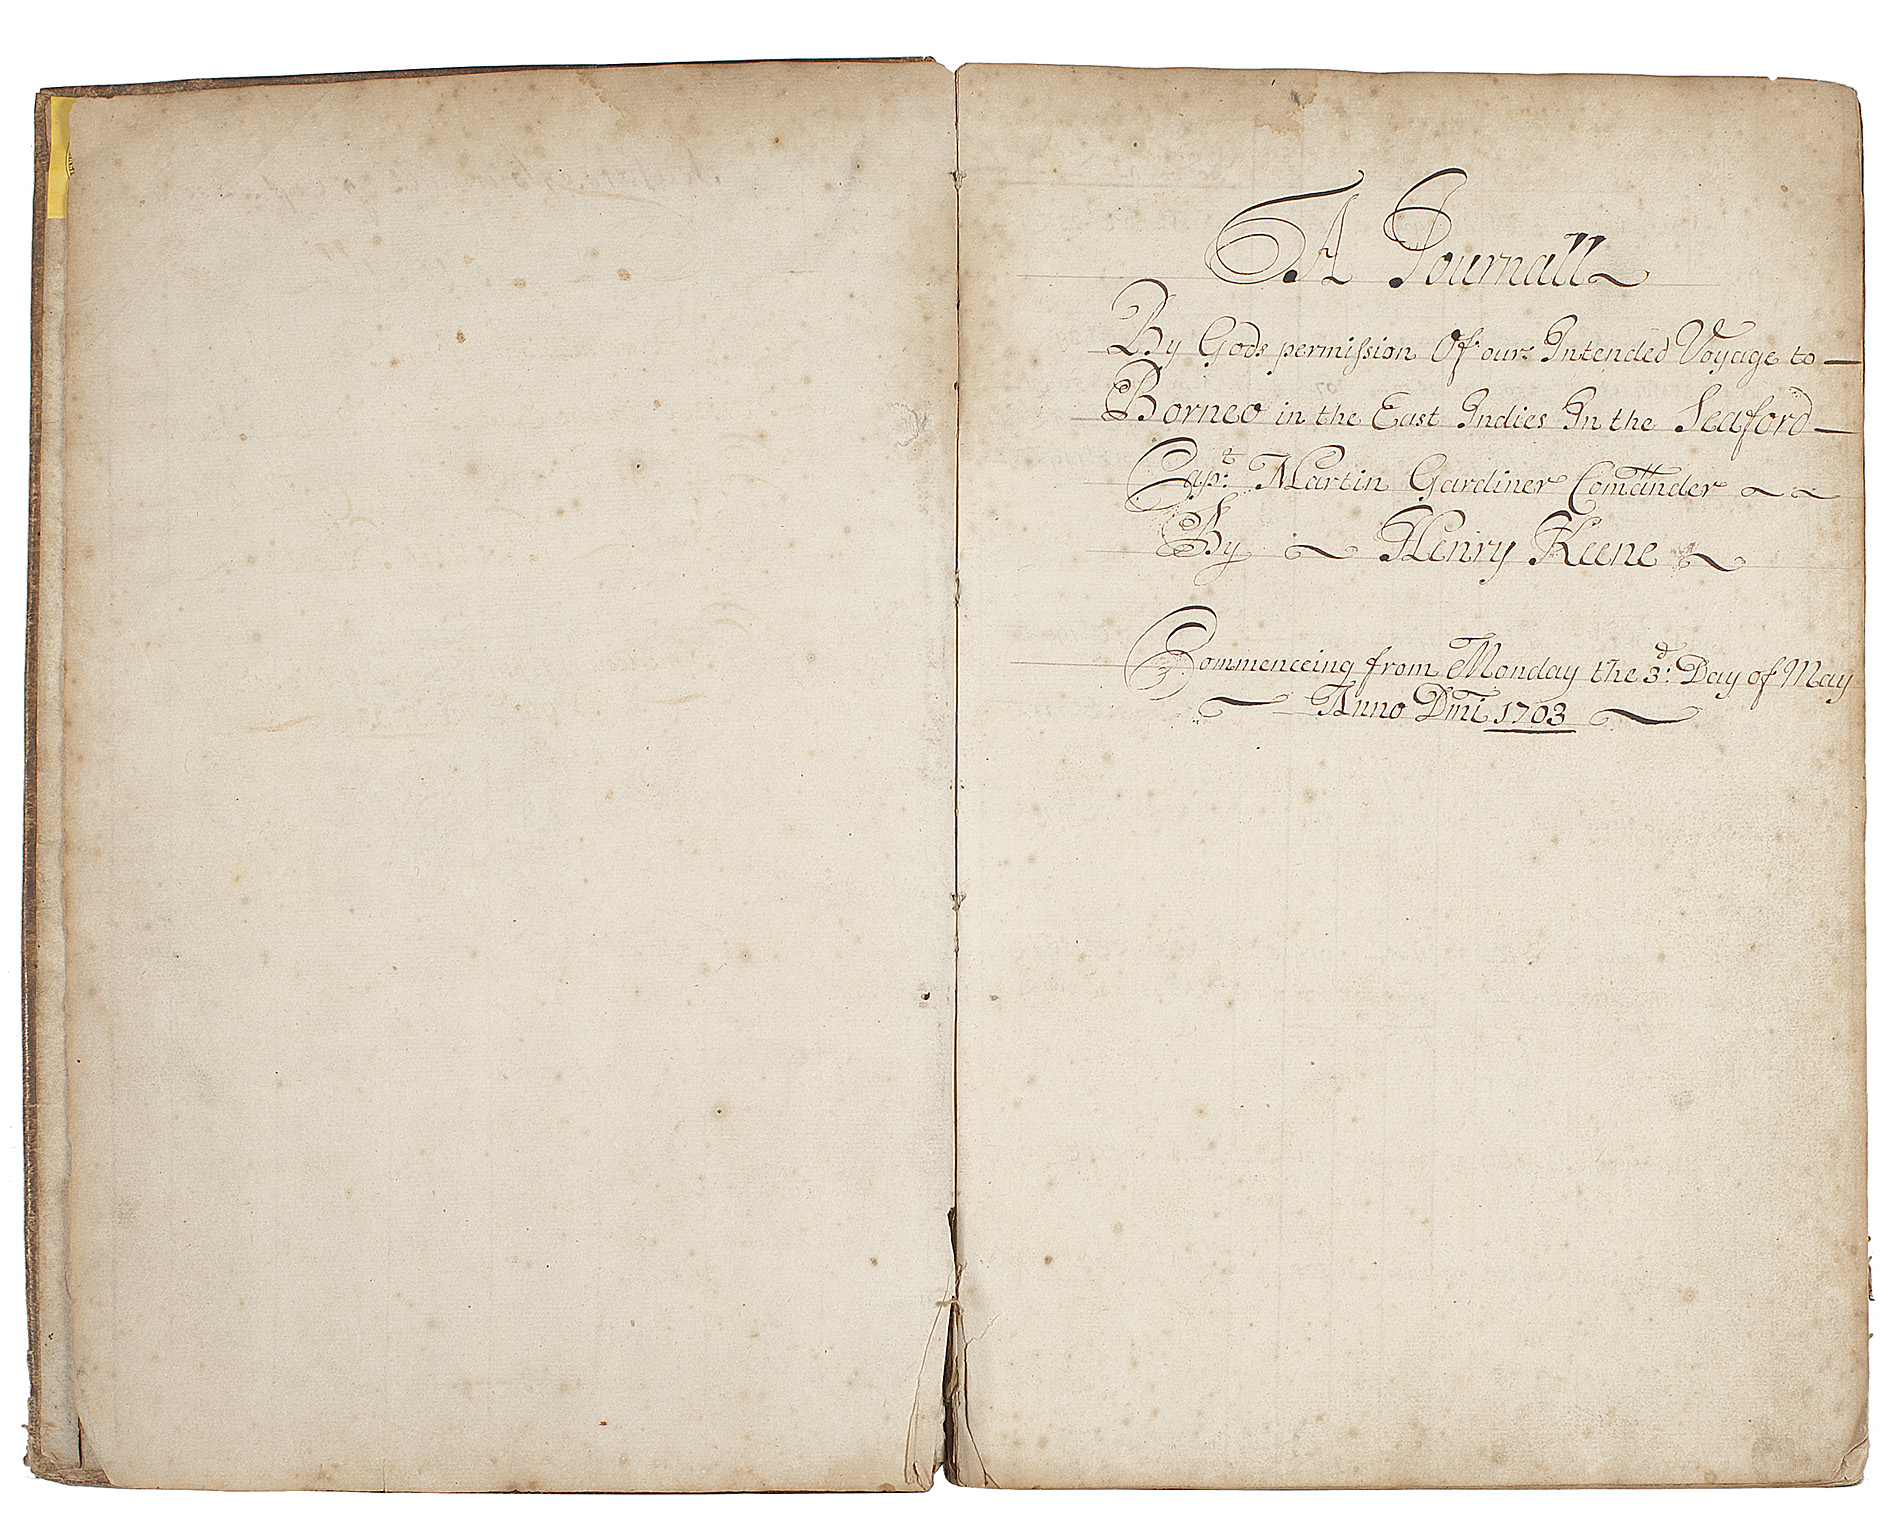 A Journall
By Gods permission Of our Intended Voyage to
Borneo in the East Indies In the Seaford
Capt: Martin Gardiner Comander
By Henry Keene
Commenceing from Monday the 3d: Day of May
Anno Dmi 1703